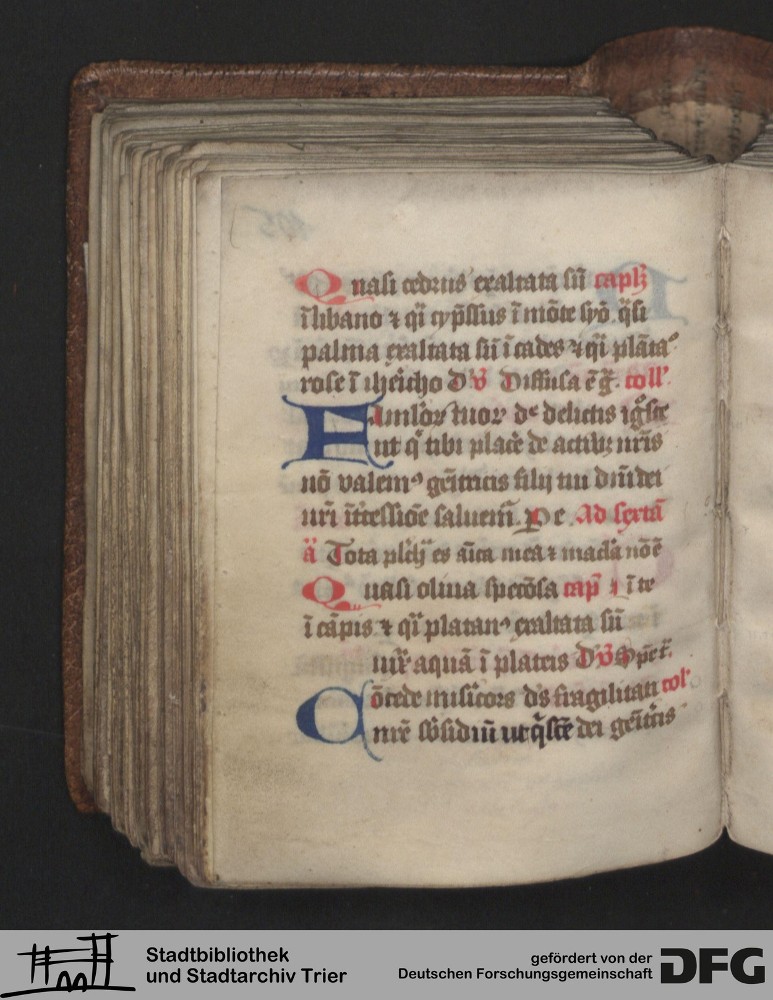 Quasi cedrus exaltata sū capłꝫ
ī libano ⁊ qī cyp̄ssus ī mōte syō q̄si
palma exaltata sū ī cades ⁊ qī plāta
rose ī iħeicho D v̄ Diffusa ē g̃. coll'
Famlor tuor dᵉ delictis ignosce
ut q̄ tibi placē de actibꝫ nr̄is
nō valemꝰ geītricis filij tui dn̄i dei
nr̄i īt̄cessiōe saluem̄. p e. Ad sextā
ā Tota plch̄ es aīca mea ⁊ macla nō ē
Quasi oliua specōsa cap̄ ī te
ī cāpis ⁊ qī platanꝰ exaltata sū
iux̄ aquā ī plateis D v̄ Spēt.
Cōcede misicors ds fragilitati col'
nr̄e s̄bsidiū ut q̄ scē dei geītcis
Stadtbibliothek
und Stadtarchiv Trier
gefördert von der
Deutschen Forschungsgemeinschaft
DFG